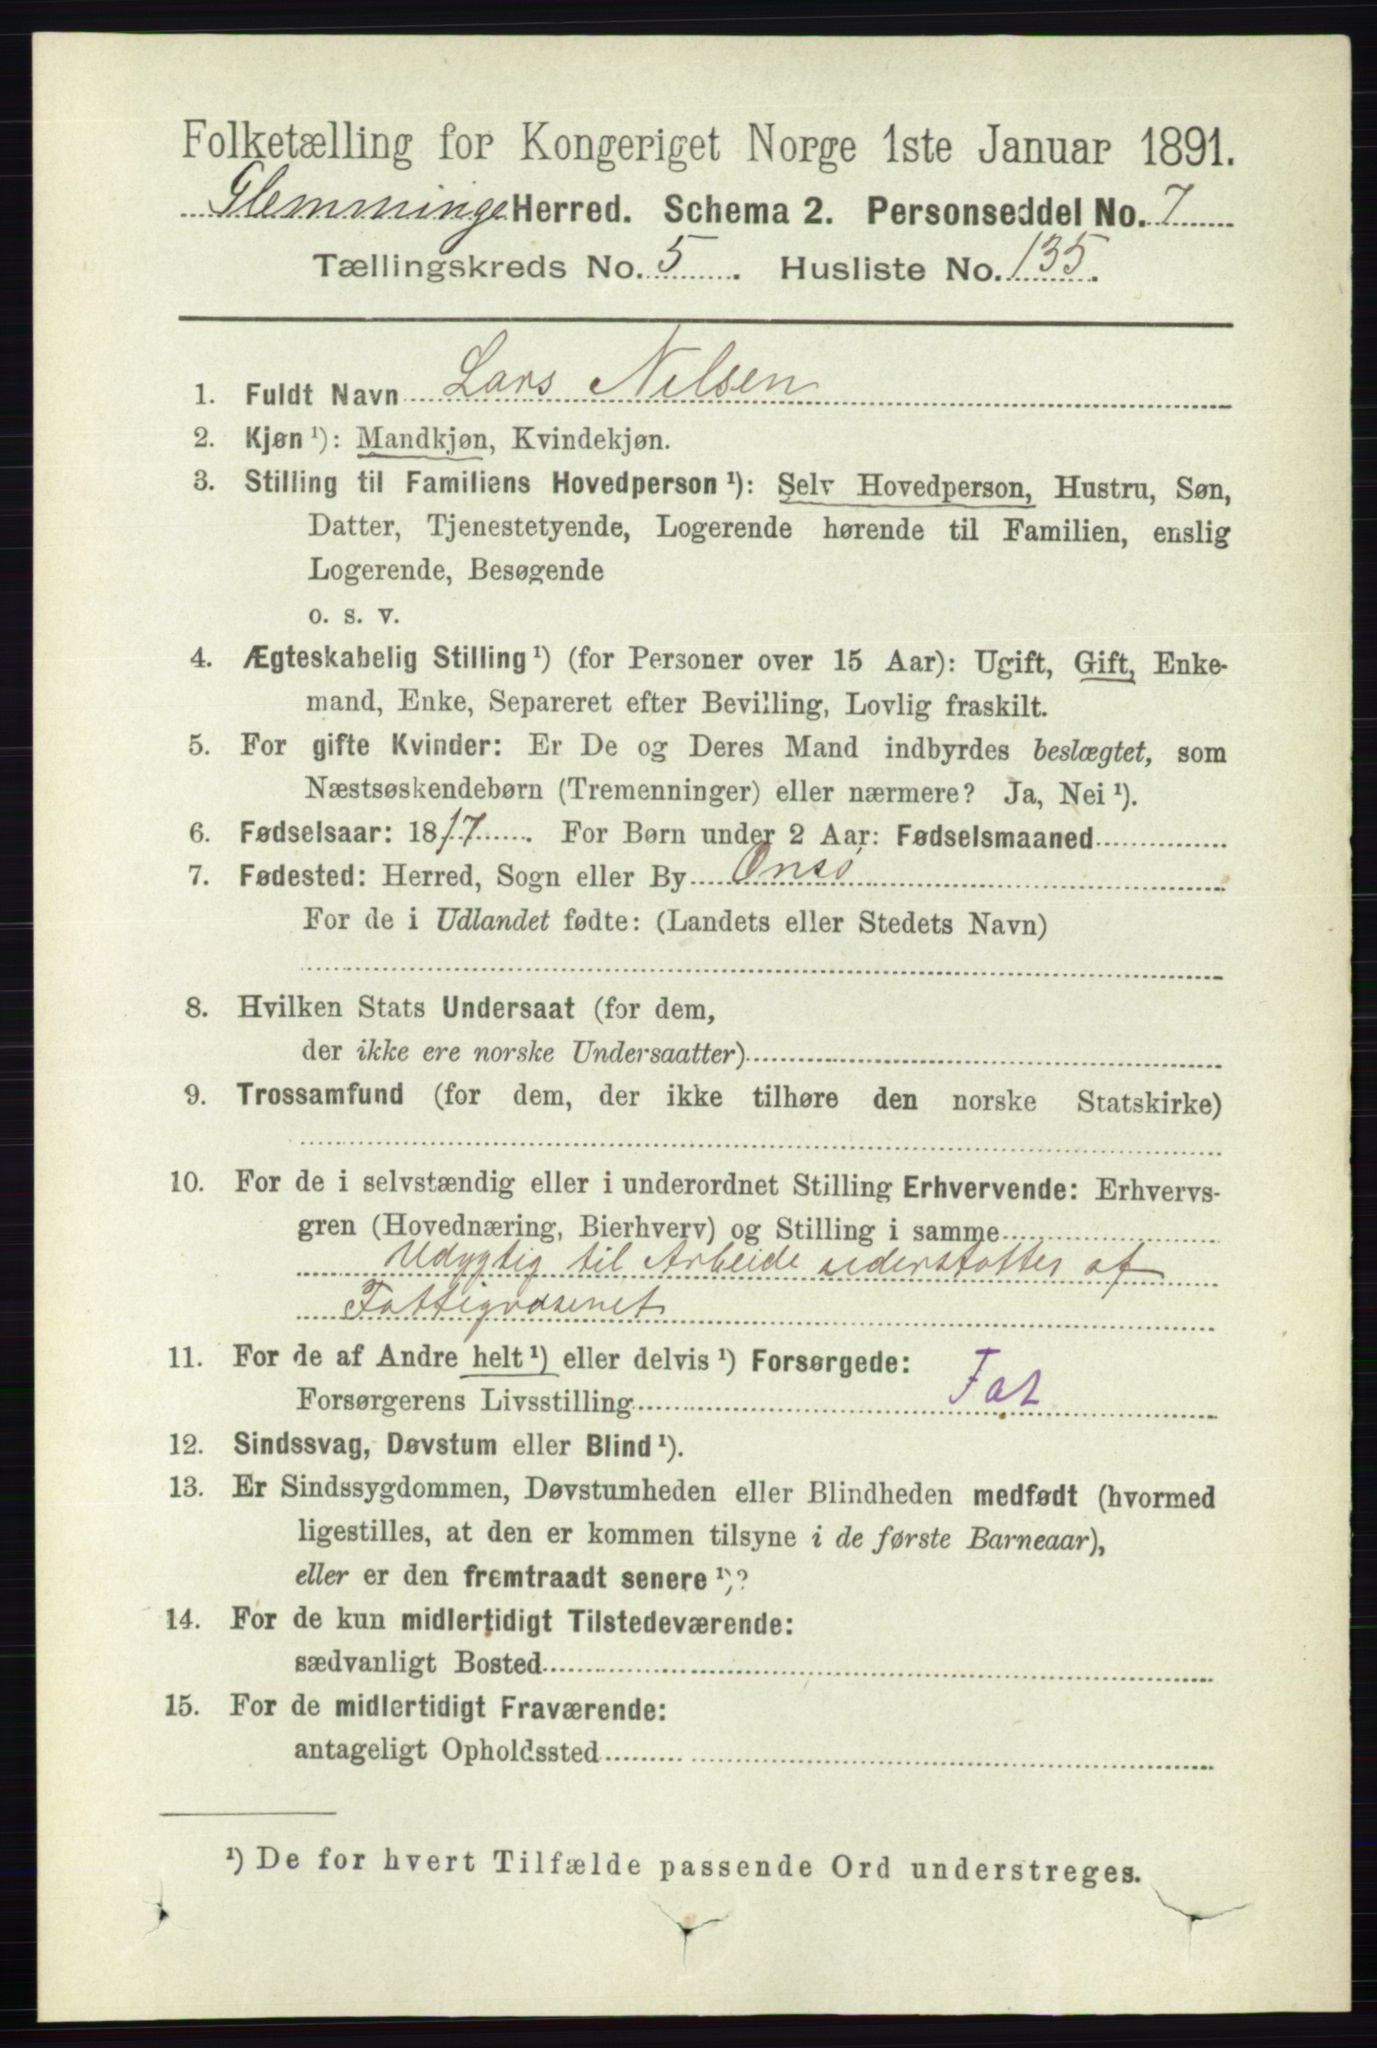 Folketælling for Kongeriget Norge 1ste Januar 1891.
Glemminge Herred. Schema 2. Personseddel No. 7
Tællingskreds No. 5. Husliste No. 135.
1. Fuldt Navn Lars Nilsen
2. Kjøn ¹): Mandkjøn, Kvindekjøn.
3. Stilling til Familiens Hovedperson ¹): Selv Hovedperson, Hustru, Søn,
Datter, Tjenestetyende, Logerende hørende til Familien, enslig
Logerende, Besøgende
o. s. v.
4. Ægteskabelig Stilling ¹) (for Personer over 15 Aar): Ugift, Gift, Enke-
mand, Enke, Separeret efter Bevilling, Lovlig fraskilt.
5. For gifte Kvinder: Er De og Deres Mand indbyrdes beslægtet, som
Næstsøskendebørn (Tremenninger) eller nærmere? Ja, Nei ¹).
6. Fødselsaar: 1817. For Børn under 2 Aar: Fødselsmaaned
7. Fødested: Herred, Sogn eller By Onsø
For de i Udlandet fødte: (Landets eller Stedets Navn)
8. Hvilken Stats Undersaat (for dem,
der ikke ere norske Undersaatter)
9. Trossamfund (for dem, der ikke tilhøre den norske Statskirke)
10. For de i selvstændig eller i underordnet Stilling Erhvervende: Erhvervs-
gren (Hovednæring, Bierhverv) og Stilling i samme
Udygtig til Arbeide understøttes af
Fattigvæsenet
11. For de af Andre helt ¹) eller delvis ¹) Forsørgede:
Forsørgerens Livsstilling Fat
12. Sindssvag, Døvstum eller Blind ¹).
13. Er Sindssygdommen, Døvstumheden eller Blindheden medfødt (hvormed
ligestilles, at den er kommen tilsyne i de første Barneaar),
eller er den fremtraadt senere ¹)?
14. For de kun midlertidigt Tilstedeværende:
sædvanligt Bosted
15. For de midlertidigt Fraværende:
antageligt Opholdssted
¹) De for hvert Tilfælde passende Ord understreges.